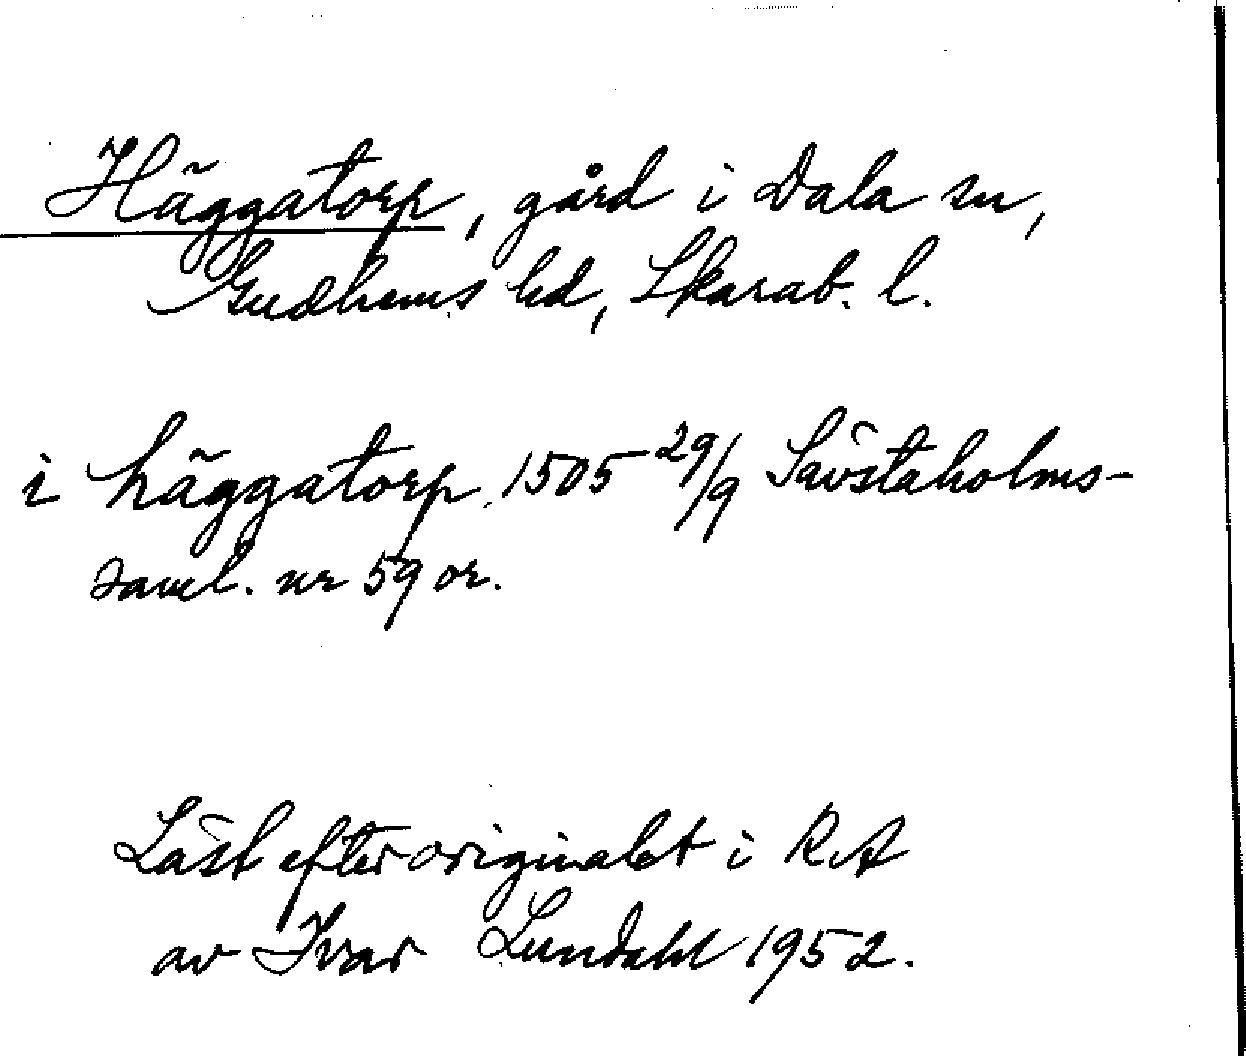 Häggatorp, gård i Dala sn,
Gudhems hd, Skarab. l.
i häggatorp 1505 29/9 Sävstaholms-
saml. nr 59 or.
Läst efter originalet i RA
av Ivar Lundahl 1952.